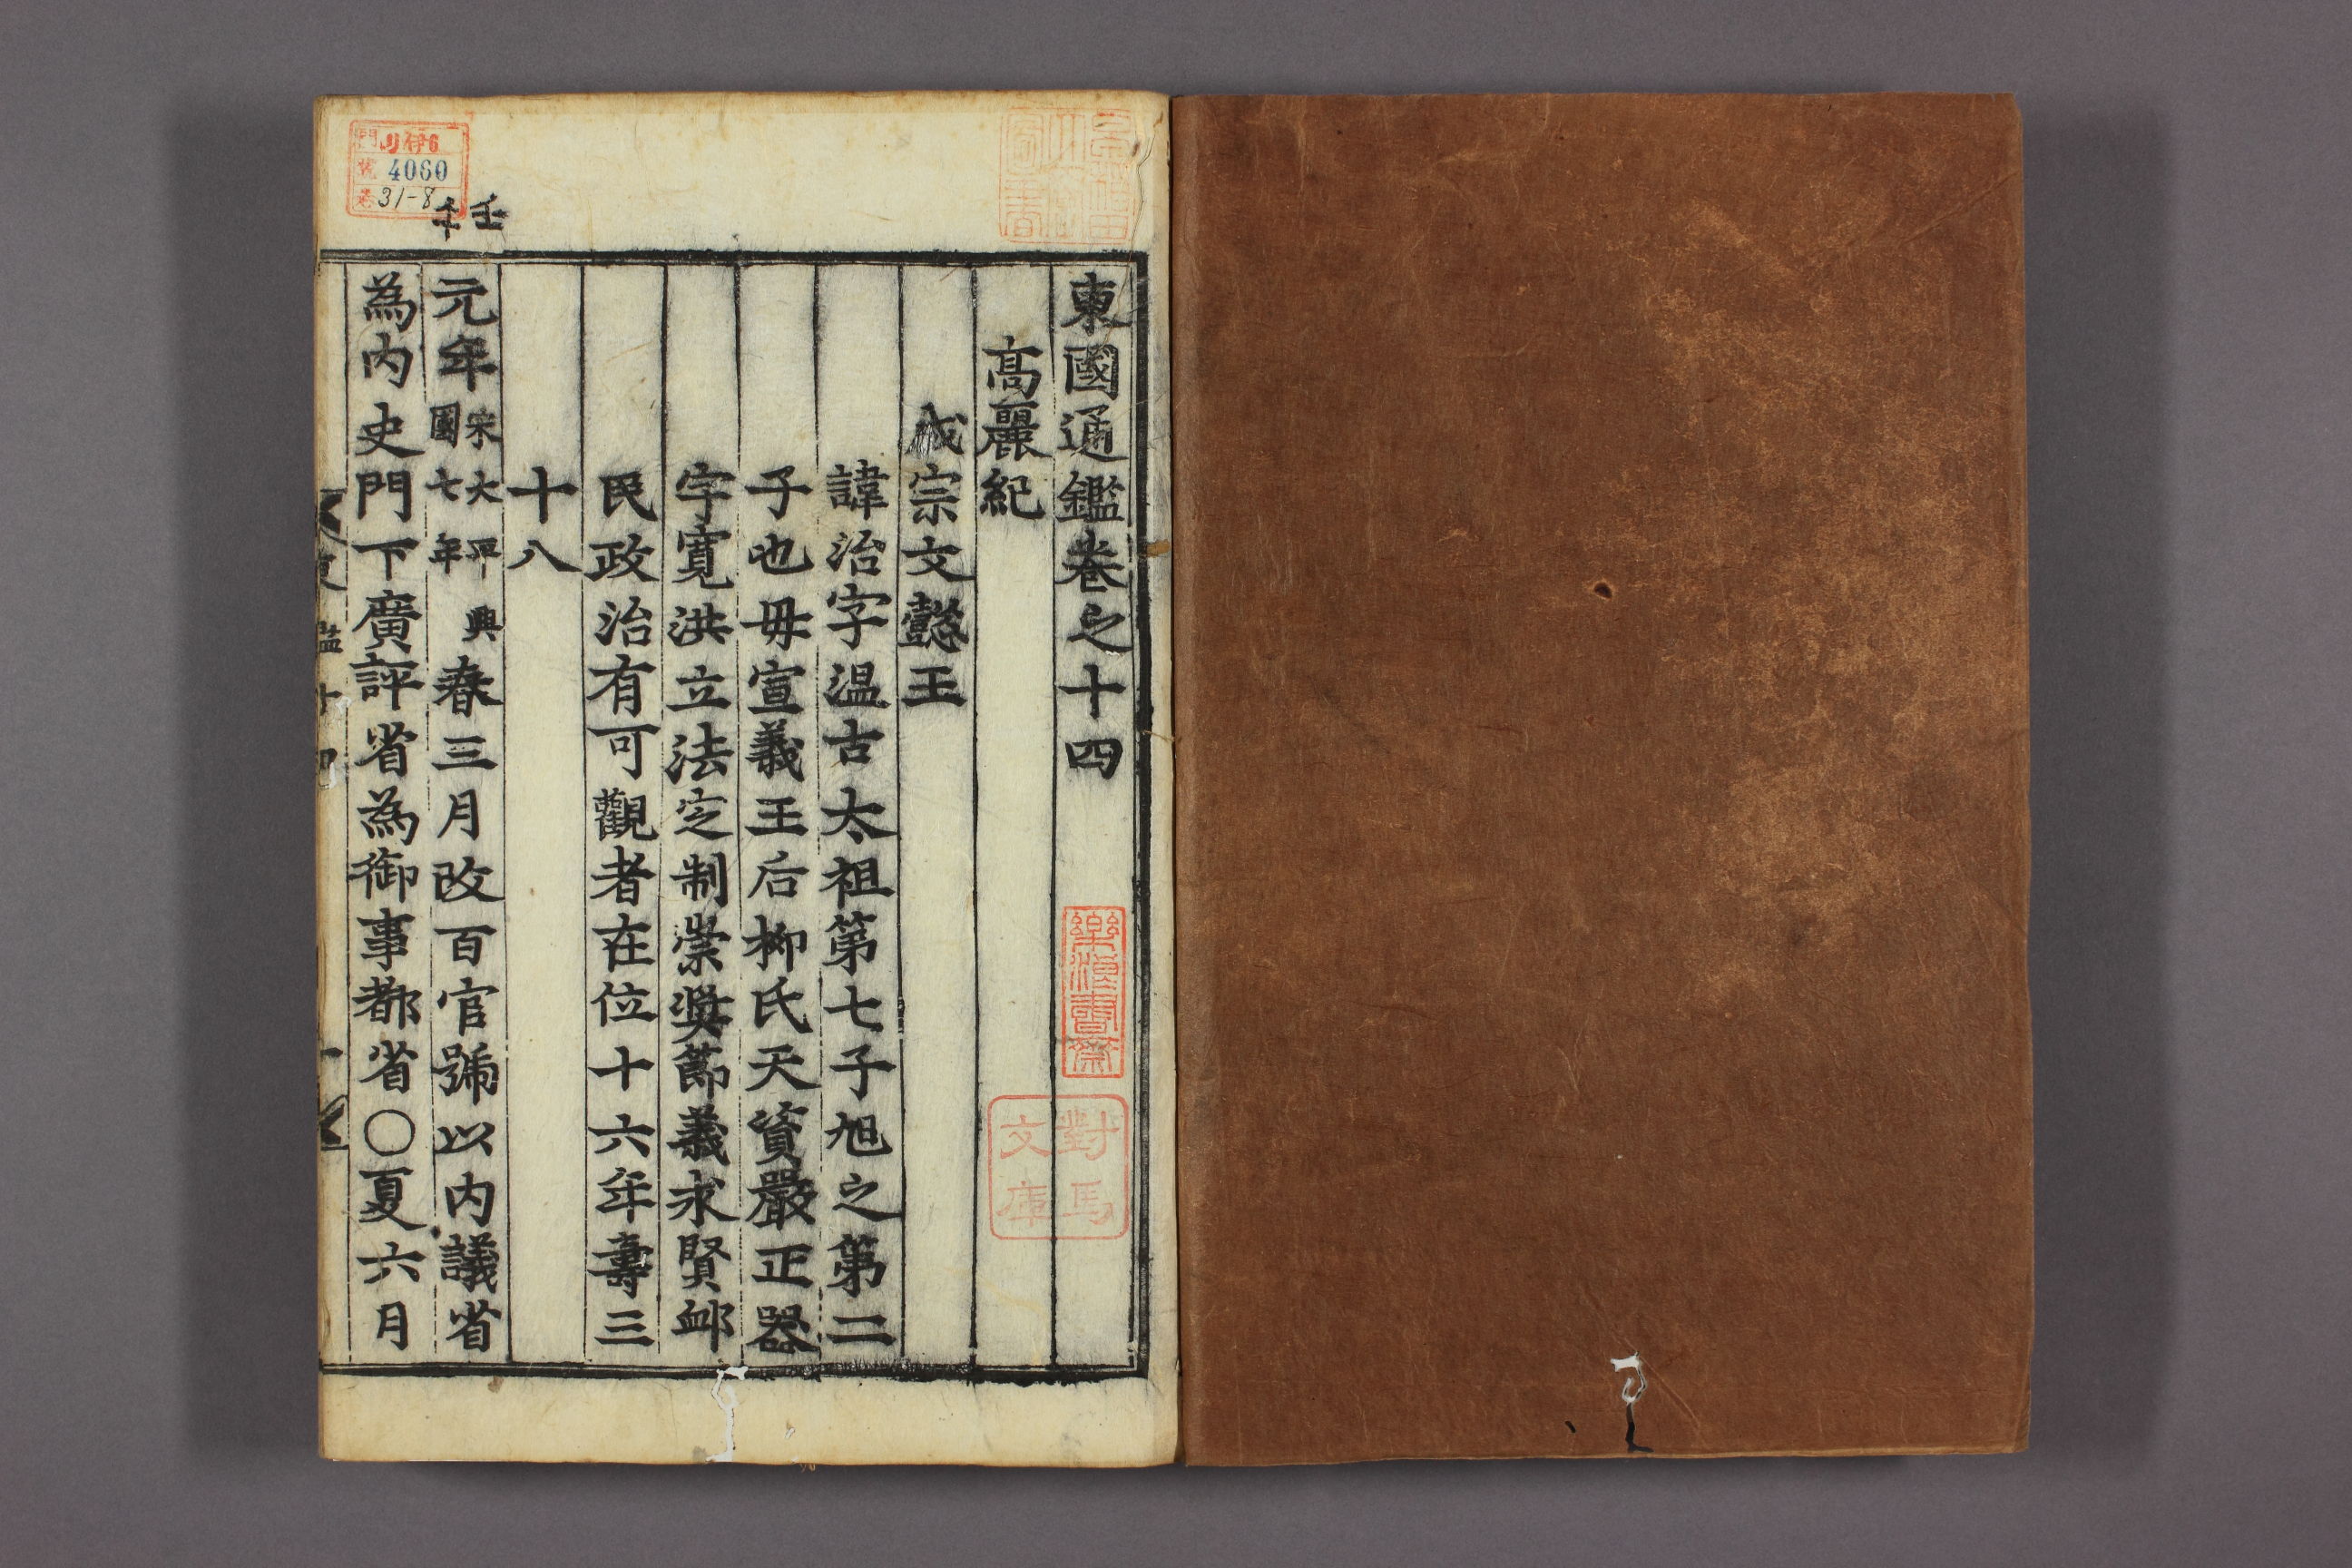 東國通鑑卷之十四
髙麗紀
成宗文懿王
諱治字温古太祖第七子旭之第二
子也母宣義王后柳氏天資嚴正器
宇寬洪立法定制崇奬節義求賢衈
民政治有可觀者在位十六年壽三
十八
壬午
元年宋太平興國七年春三月改百官號以内議省
為内史門下廣評省為御事都省○夏六月
對馬文庫
樂浪書齋
門 リ伊6
號 4060
卷 31-8